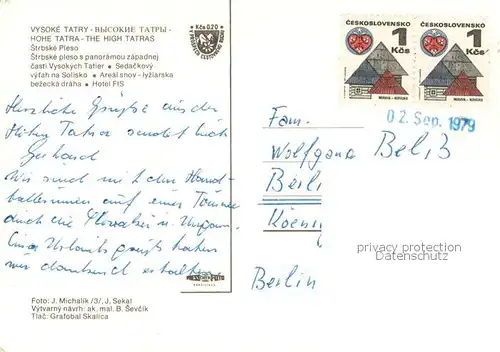 VYSOKÉ TATRY - ВЫСОКИЕ ТАТРЫ -
HOHE TATRA - THE HIGH TATRAS
Štrbské Pleso
Štrbské pleso s panorámou západnej
časti Vysokých Tatier • Sedačkový
výťah na Solisko • Areál snov - lyžiarska
bežecká dráha • Hotel FIS
Kčs 0,20
ČESKOSLOVENSKO
1
Kčs
ČESKOSLOVENSKO
1
Kčs
02. Sep. 1979
Herzliche Grüße aus der
Hohen Tatra sendet Euch
Gerhard
Wir sind mit den Hand-
ballerinnen auf einer Tournee
durch die Slowakei u. Ungarn.
Eure Urlaubsgrüße haben
wir dankend erhalten
Fam.
Wolfgang Belß
Berli
Koenig
Berlin
privacy protection
www.ansichtskarten-center.de
PRESSFOTO
BRATISLAVA
Foto: J. Michalík /3/, J. Sekal
Výtvarný návrh: ak. mal. B. Ševčík
Tlač: Grafobal Skalica